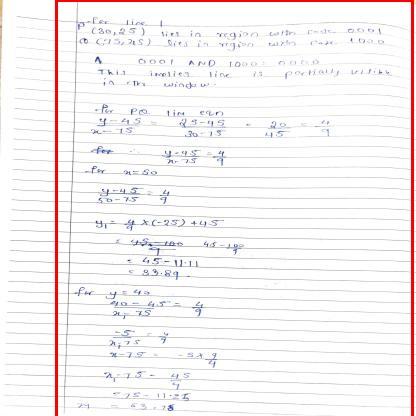 for line 1
P (30,25) lies in region with code 0001
Q (75,45) lies in region with code 1000
0001 AND 1000 = 0000
This implies line is partially visible
in the window.
for PQ line eqn
y-45/x-75 = 25-45/30-75 = 20/45 = 4/9
for ∴ y-45/x-75 = 4/9
for x=50
y-45/50-75 = 4/9
y₁ = 4/9 ×(-25) +45
= 45 - 100/9 45-100/9
= 45-11.11
= 33.89
for y = 40
40-45/x₁-75 = 4/9
-5/x₁-75 = 4/9
x-75 = -5 × 9/4
x₁-75 - 45/4
=75-11.25
= 63.75